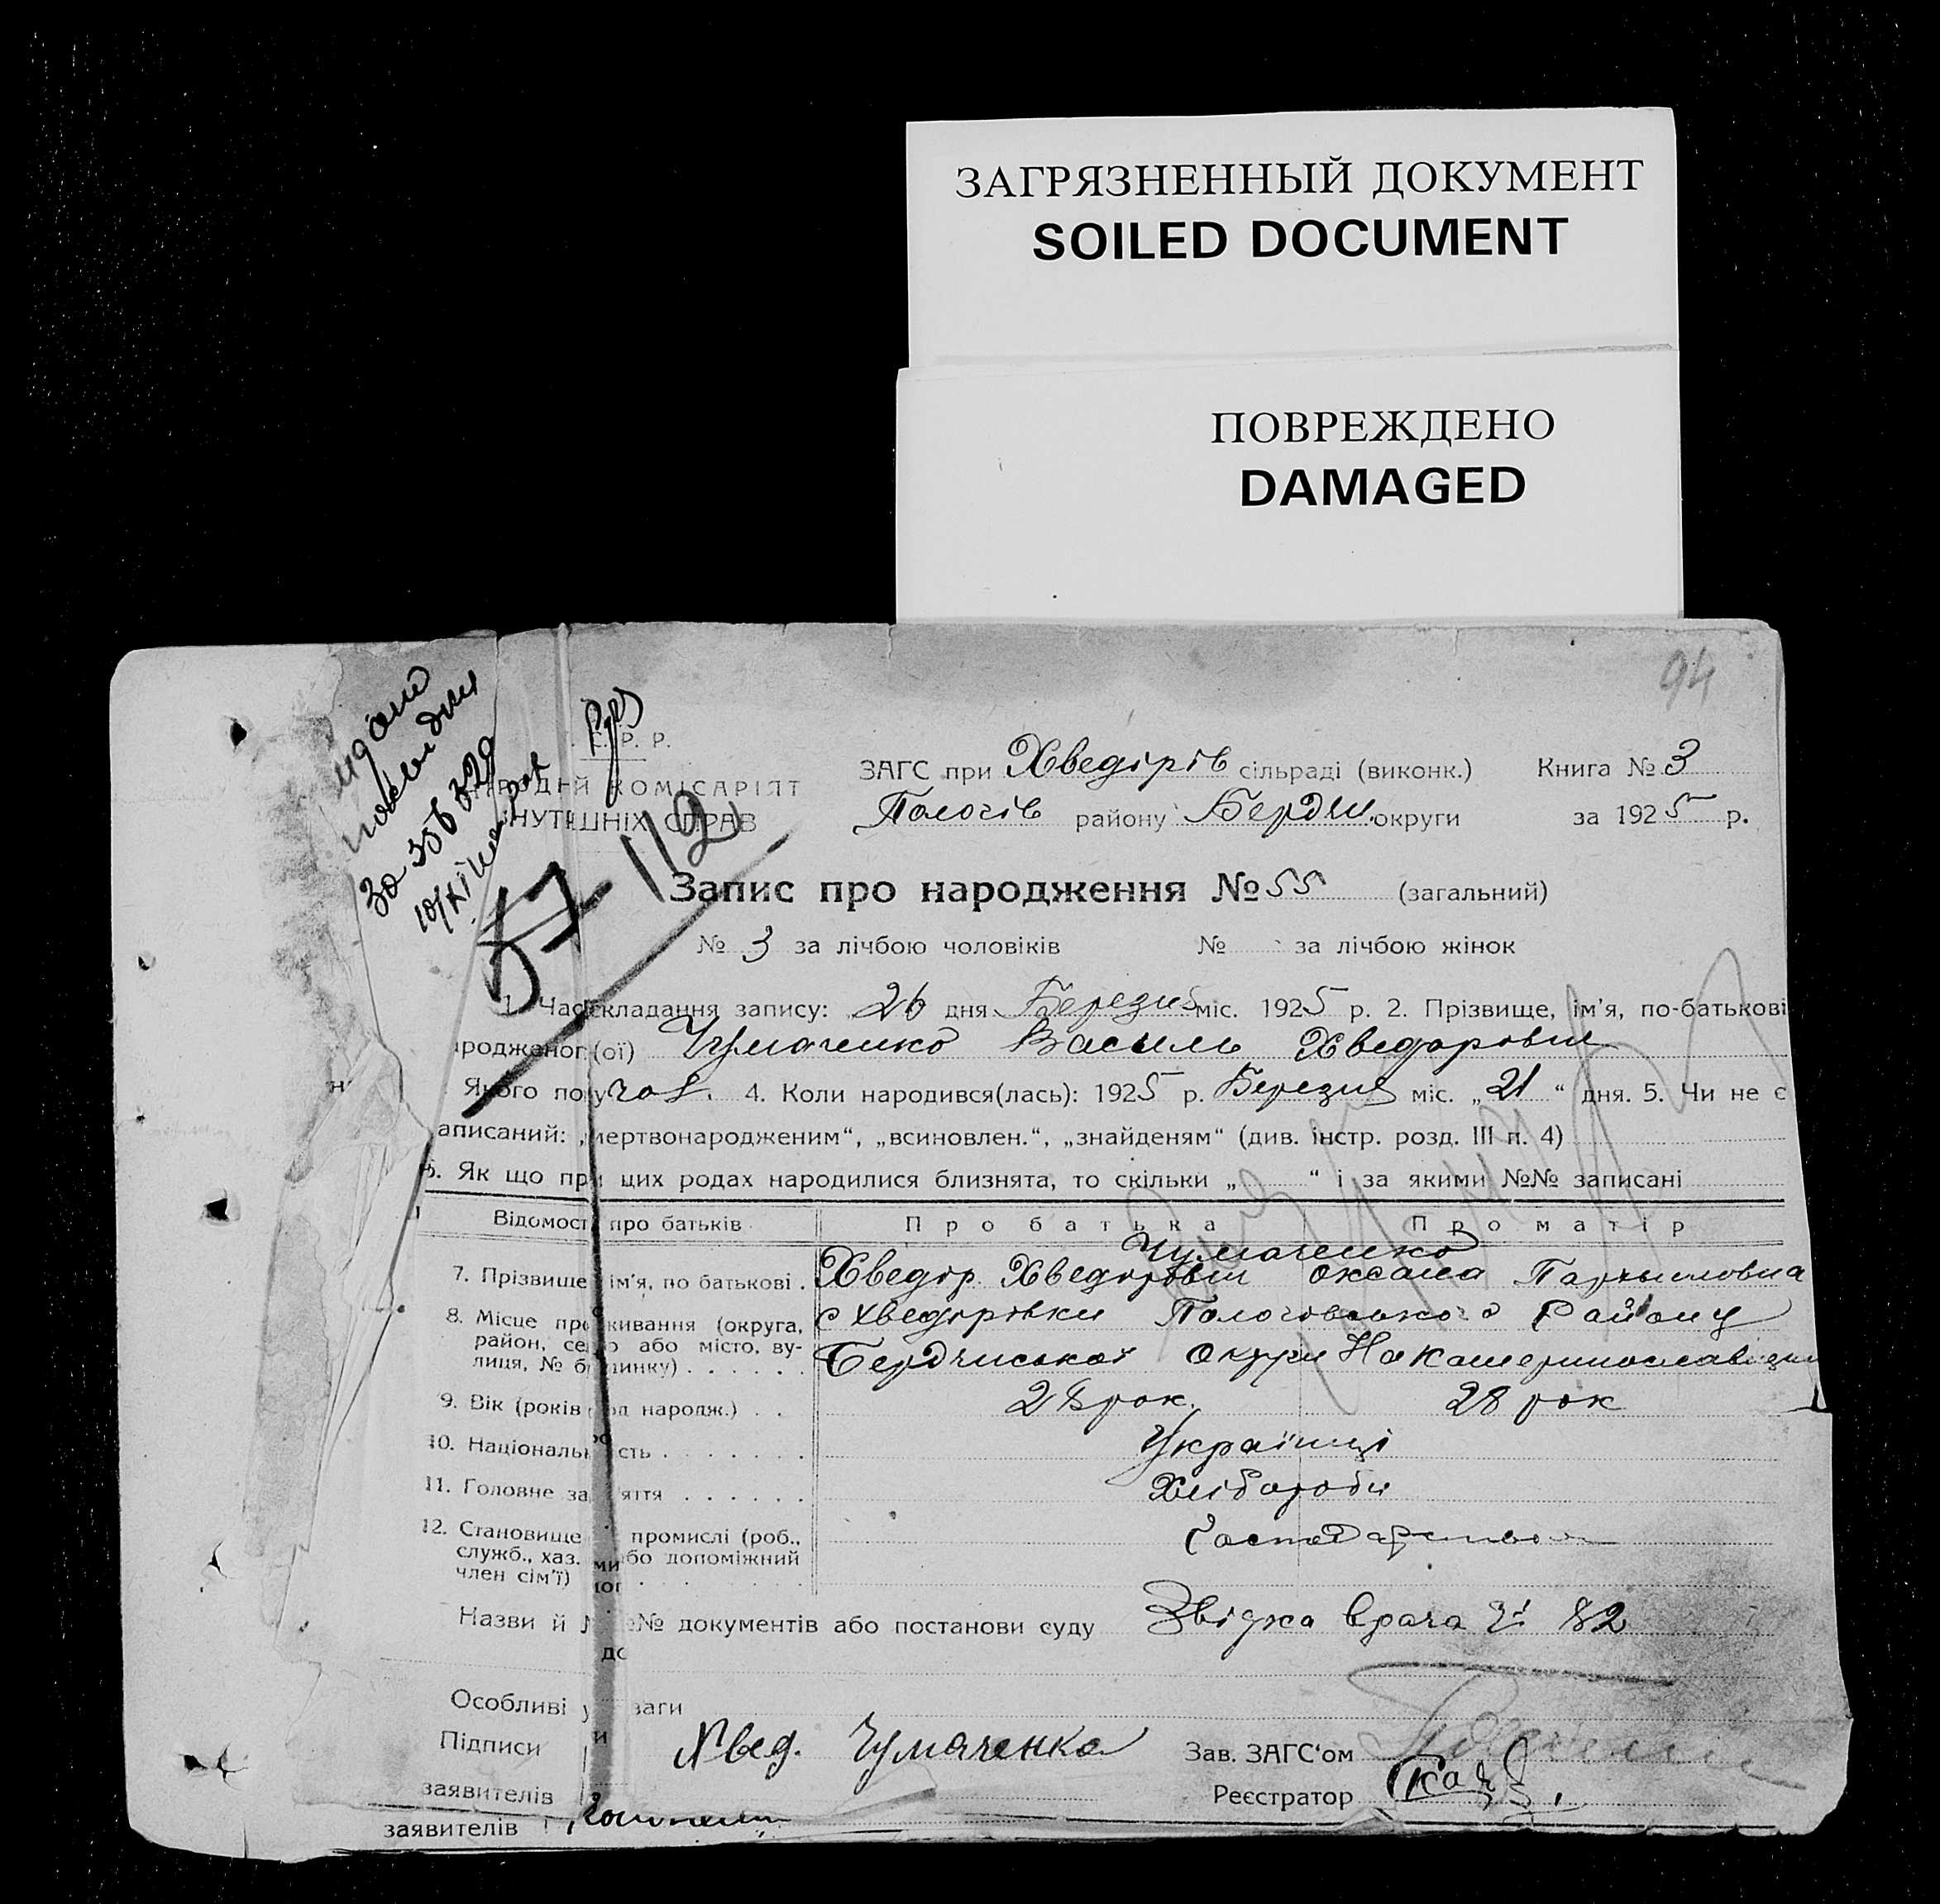 ЗАГРЯЗНЕННЫЙ ДОКУМЕНТ
SOILED DOCUMENT
ПОВРЕЖДЕНО
DAMAGED
94
за 356 329
Р. Р.
КОМІСАРІЯТ
СПРАВ
57 112
ЗАГС при Хведірів сільраді (виконк.) Книга № 3
Пологів району Бердн. округи за 1925 р.
Запис про народження № 55 (загальний)
№ 3 за лічбою чоловіків № за лічбою жінок
1. Час складання запису: 26 дня Березня міс. 1925 р. 2. Прізвище, ім'я, по-батькові
родженого (ої) Чумаченко Василь Хведорович
Якого полу чол. 4. Коли народився(лась): 1925 р. Березня міс. „21“ дня. 5. Чи не є
аписаний: „мертвонародженим“, „всиновлен.“, „знайденям“ (див. інстр. розд. III п. 4)
6. Як що при цих родах народилися близнята, то скільки „ “ і за якими №№ записані
Відомості про батьків Про батька Про матір
Чумаченко
7. Прізвище ім'я, по батькові . Хведір Хведорович Оксана
8. Місце проживання (округа, район, село або місто, вулиця, № будинку) . . . . . . с Хведорівки Пологовського Району
Бердянської Округи На Катеринославщині
9. Вік (років од народж.) . . 28 рок. 28 рок
10. Національність . . . . . . . Українці
11. Головне заняття . . . . . . Хлібороби
12. Становище в промислі (роб., служб., хаз. або допоміжний член сім'ї)
Назви й №№ документів або постанови суду Звідка врача № 82
Особливі уваги
Підписи Хвед. Чумаченко Зав. ЗАГС'ом
заявителів Реєстратор
заявителів